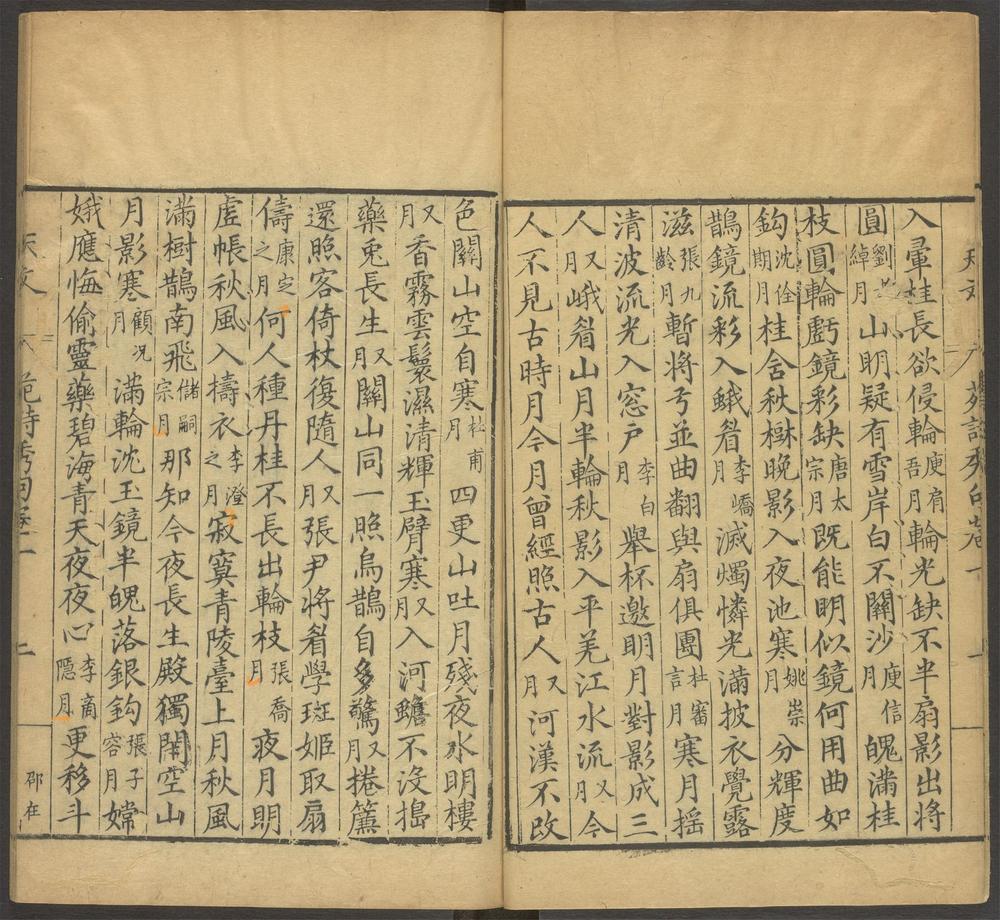 入暈桂長欲侵輪庾肩吾月輪光缺不半扇影出將
圓劉孝綽月山明疑有雪岸白不關沙庾信月魄滿桂
枝圓輪虧鏡彩缺唐太宗月既能明似鏡何用曲如
鈎沈佺期月桂含秋樹晚影入夜池寒姚崇月分輝度
鵲鏡流彩入蛾眉李嶠月滅燭憐光滿披衣覺露
滋張九齡月暫將弓並曲翻與扇俱團杜審言月寒月搖
清波流光入窓戶李白月舉杯邀明月對影成三
人又月峨眉山月半輪秋影入平羌江水流又月今
人不見古時月今月曾經照古人又月河漢不改
色關山空自寒杜甫月四更山吐月殘夜水明樓
又月香霧雲鬟濕清輝玉臂寒又月入河蟾不沒搗
藥兎長生又月關山同一照烏鵲自多驚又月捲簾
還照客倚杖復隨人又月張尹將眉學班姬取扇
儔康定之月何人種丹桂不長出輪枝張喬月夜月明
虛帳秋風入擣衣李澄之月寂寞青陵臺上月秋風
滿樹鵲南飛儲嗣宗月那知今夜長生殿獨閉空山
月影寒顧况月滿輪沈玉鏡半魄落銀鈎張子容月嫦
娥應悔偷靈藥碧海青天夜夜心李商隱月更移斗
天文
二
邵在